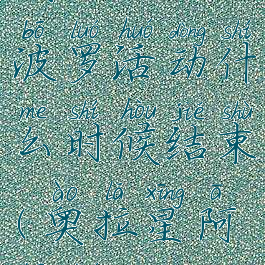 bō luó huó dòng shí
波罗活动什
me shí hòu jié shù
么时候结束
ào lā xīng ā
(奥拉星阿